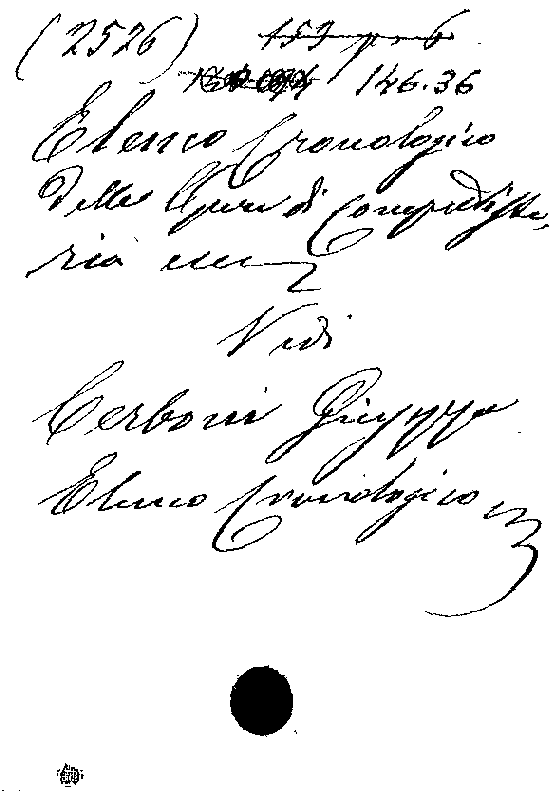 (2526)
146.36
Elenco Cronologico
delle Opere di Computiste-
ria ecc
Vedi
Cerboni Giuseppe
Elenco Cronologico